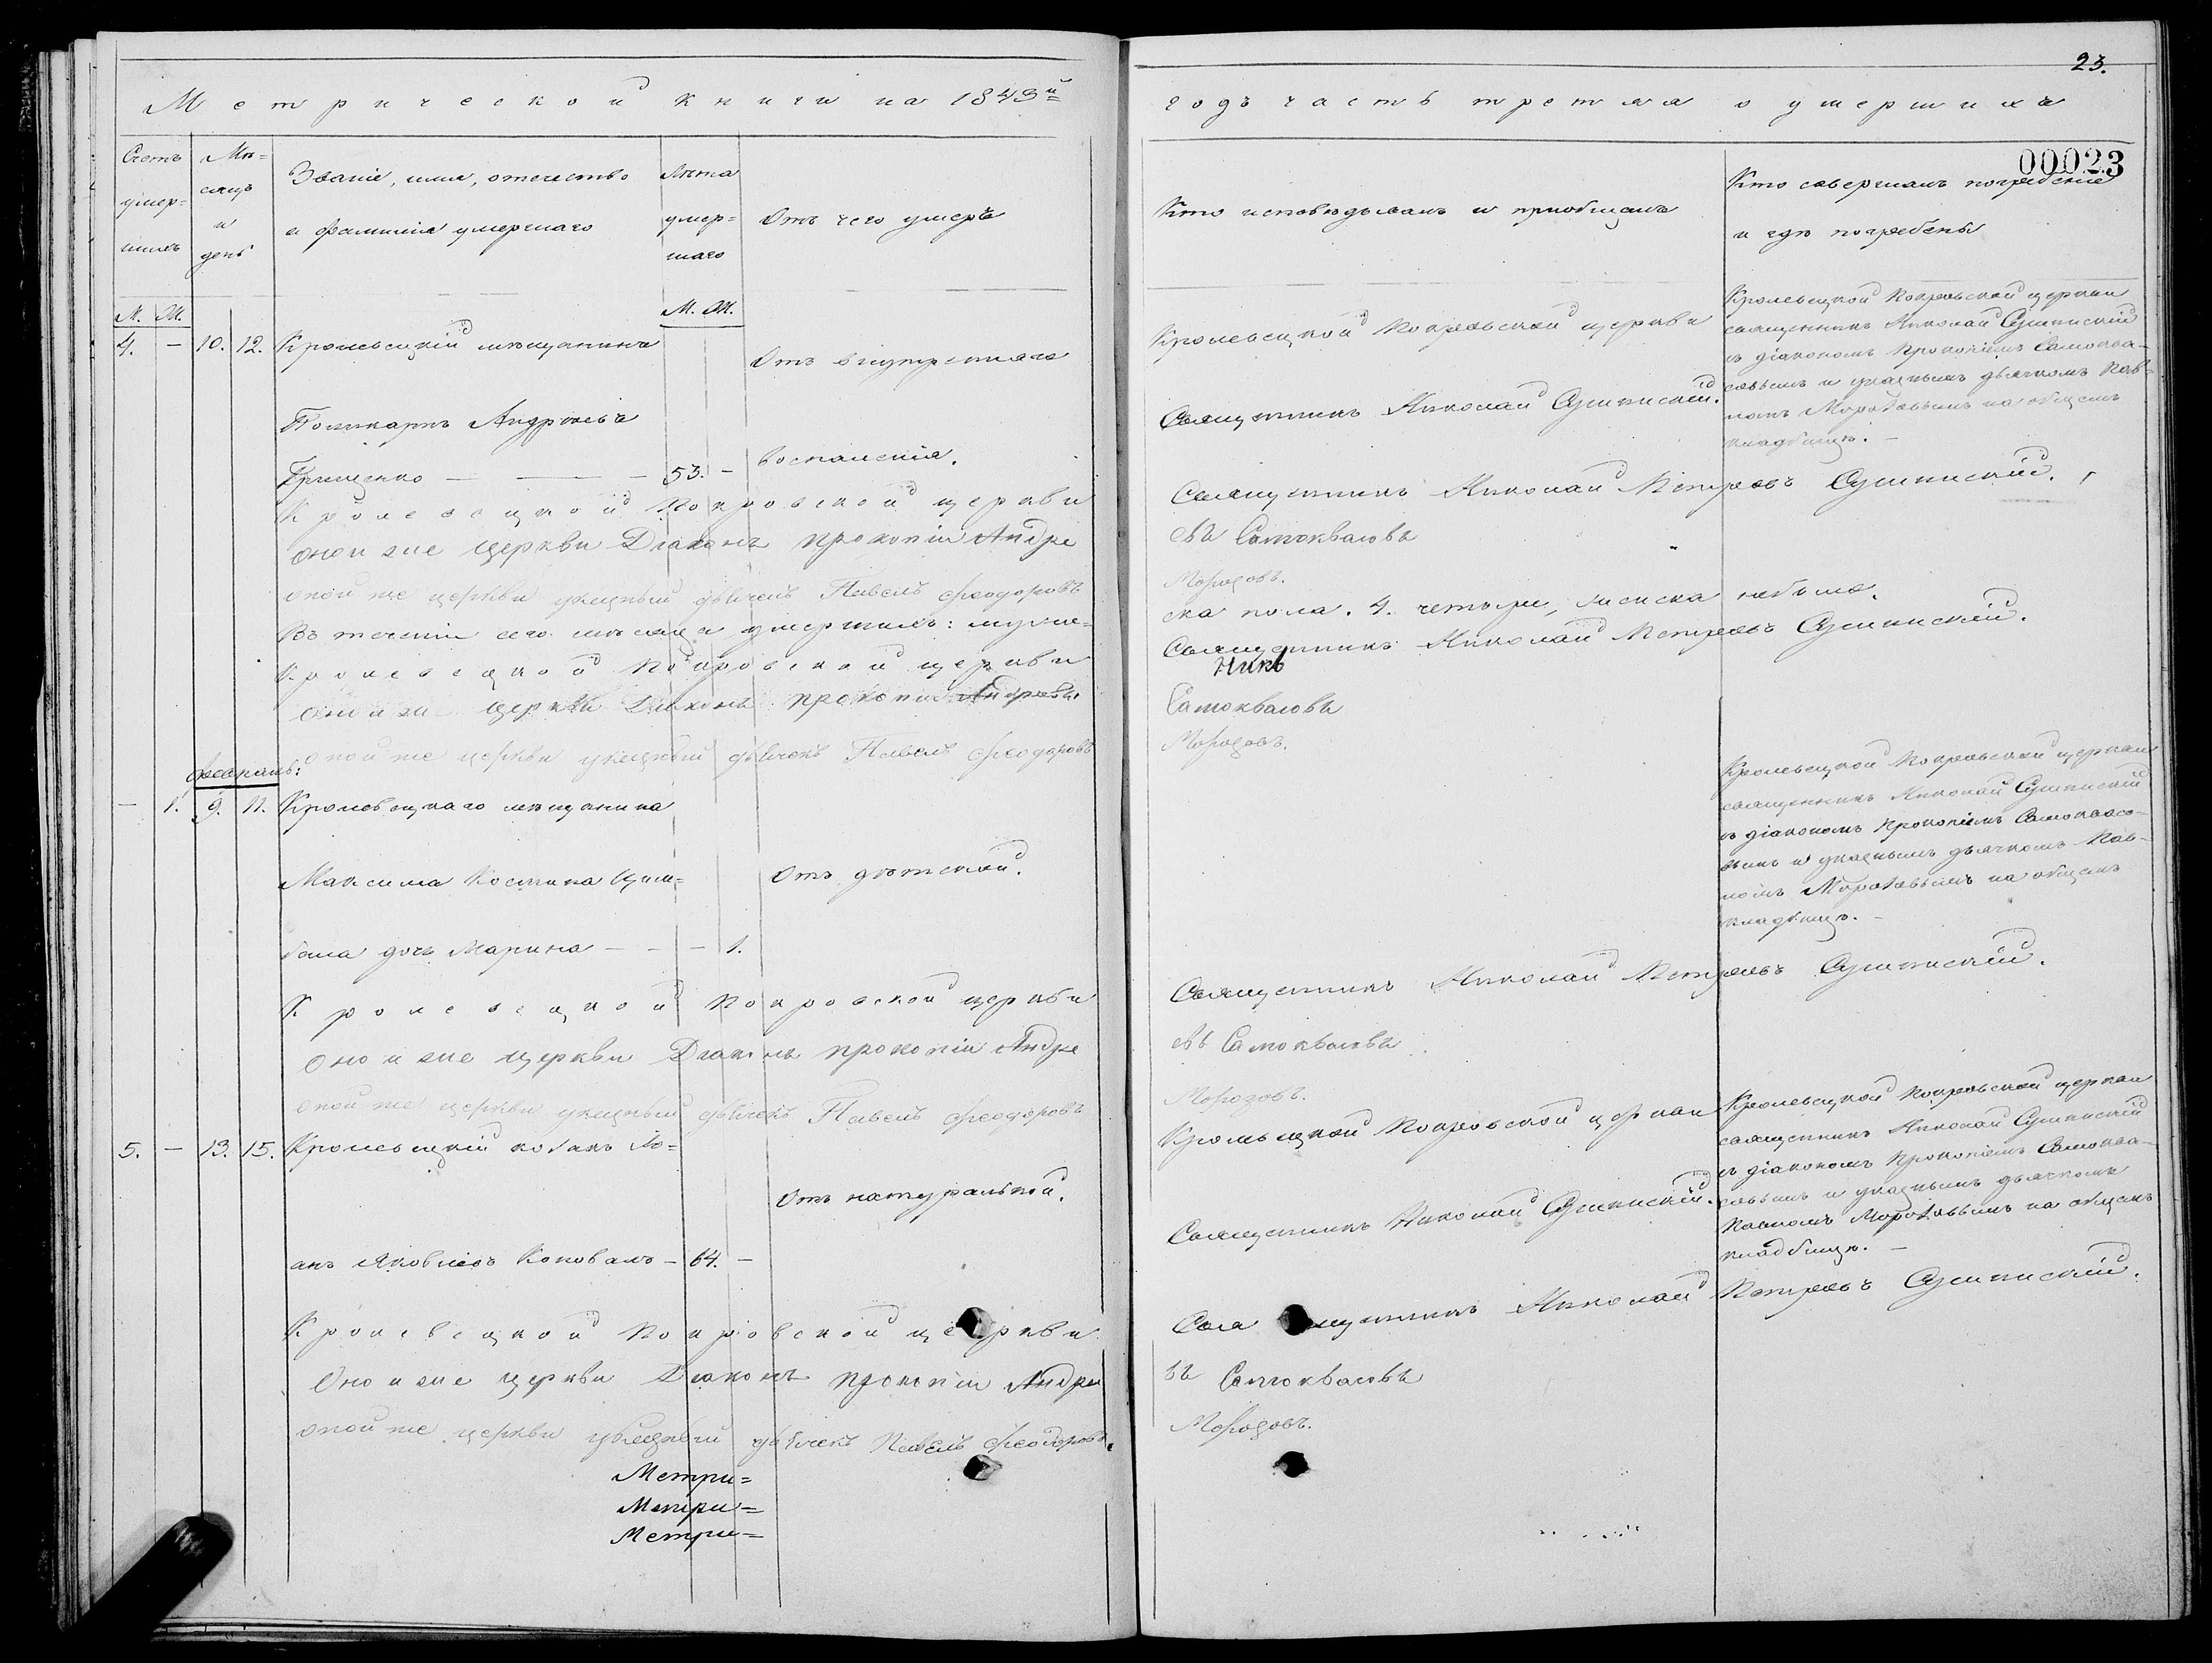 23.
Метрической книги на 1843й
годъ часть третья о умершихъ
00023
Счетъ умер-шихъ
Мѣ-сяцъ и день
Званіе, имя, отечество
и фамилія умершаго
Лѣта умер-шаго
Отъ чего умеръ
Кто исповѣдывалъ и пріобщалъ
Кто совершалъ погребеніе
и гдѣ погребены
М. Ж.
М. Ж.
4. — 10. 12. Кролевецкій мѣщанинъ
Поликарпъ Андреевъ
Грищенко — — — 53. —
Отъ внутренняго
воспаленія.
Кролевецкой Покровской церкви
Священникъ Николай Сушинскій.
Кролевецкой Покровской церкви
священникъ Николай Сушинскій
съ діакономъ Прокопіемъ Самоква-
совымъ и указнымъ дьячкомъ Пав-
ломъ Морозовымъ на общемъ
кладбищѣ. —
Кролевецкой Покровской церкви Священникъ Николай Петровъ Сушинскій.
оной же церкви Діаконъ Прокопій Андре евъ Самоквасовъ
оной же церкви указный дьячекъ Павелъ Феодоровъ Морозовъ.
Въ теченіи сего мѣсяца умершихъ: муже= ска пола. 4. четыре, женска небыло.
Кролевецкой Покровской церкви Священникъ Николай Петровъ Сушинскій.
оной же церкви Діаконъ Прокопій Андреевъ Самоквасовъ
оной же церкви указный дьячекъ Павелъ Феодоровъ Морозовъ.
Февраль:
— 1. 9. 11. Кролевецкаго мѣщанина
Максима Космина Цим=
бала дочь Марина — — — 1.
Отъ дѣтской.
Кролевецкой Покровской церкви
священникъ Николай Сушинскій
съ діакономъ Прокопіемъ Самоквасо-
вымъ и указнымъ дьячкомъ Пав-
ломъ Морозовымъ на общемъ
кладбищѣ. —
Кролевецкой Покровской церкви Священникъ Николай Петровъ Сушинскій.
оной же церкви Діаконъ Прокопій Андре евъ Самоквасовъ
оной же церкви указный дьячекъ Павелъ Феодоровъ Морозовъ.
5. — 13. 15. Кролевецкій козакъ Іо=
анъ Яковлевъ Коновалъ — 64. —
Отъ натуральной.
Кролевецкой Покровской церкви
Священникъ Николай Сушинскій.
Кролевецкой Покровской церкви
священникъ Николай Сушинскій
съ діакономъ Прокопіемъ Самоква-
совымъ и указнымъ дьячкомъ
Павломъ Морозовымъ на общемъ
кладбищѣ. —
Кролевецкой Покровской церкви Священникъ Николай Петровъ Сушинскій.
Оной же церкви Діаконъ Прокопій Андрее въ Самоквасовъ
оной же церкви указный дьячекъ Павелъ Феодоровъ Морозовъ.
Метри=
Метри=
Метри=